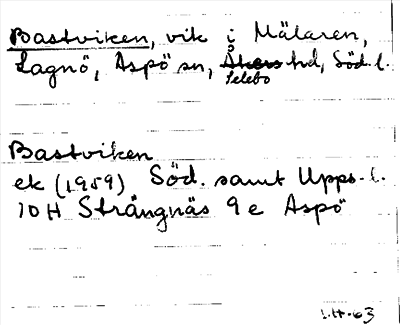 Bastviken, vik i Mälaren,
Lagnö, Aspö sn, Åkers hd, Söd. l.
Selebo
Bastviken
ek (1959) Söd. samt Upps. l.
10H Strängnäs 9e Aspö
1.H.63